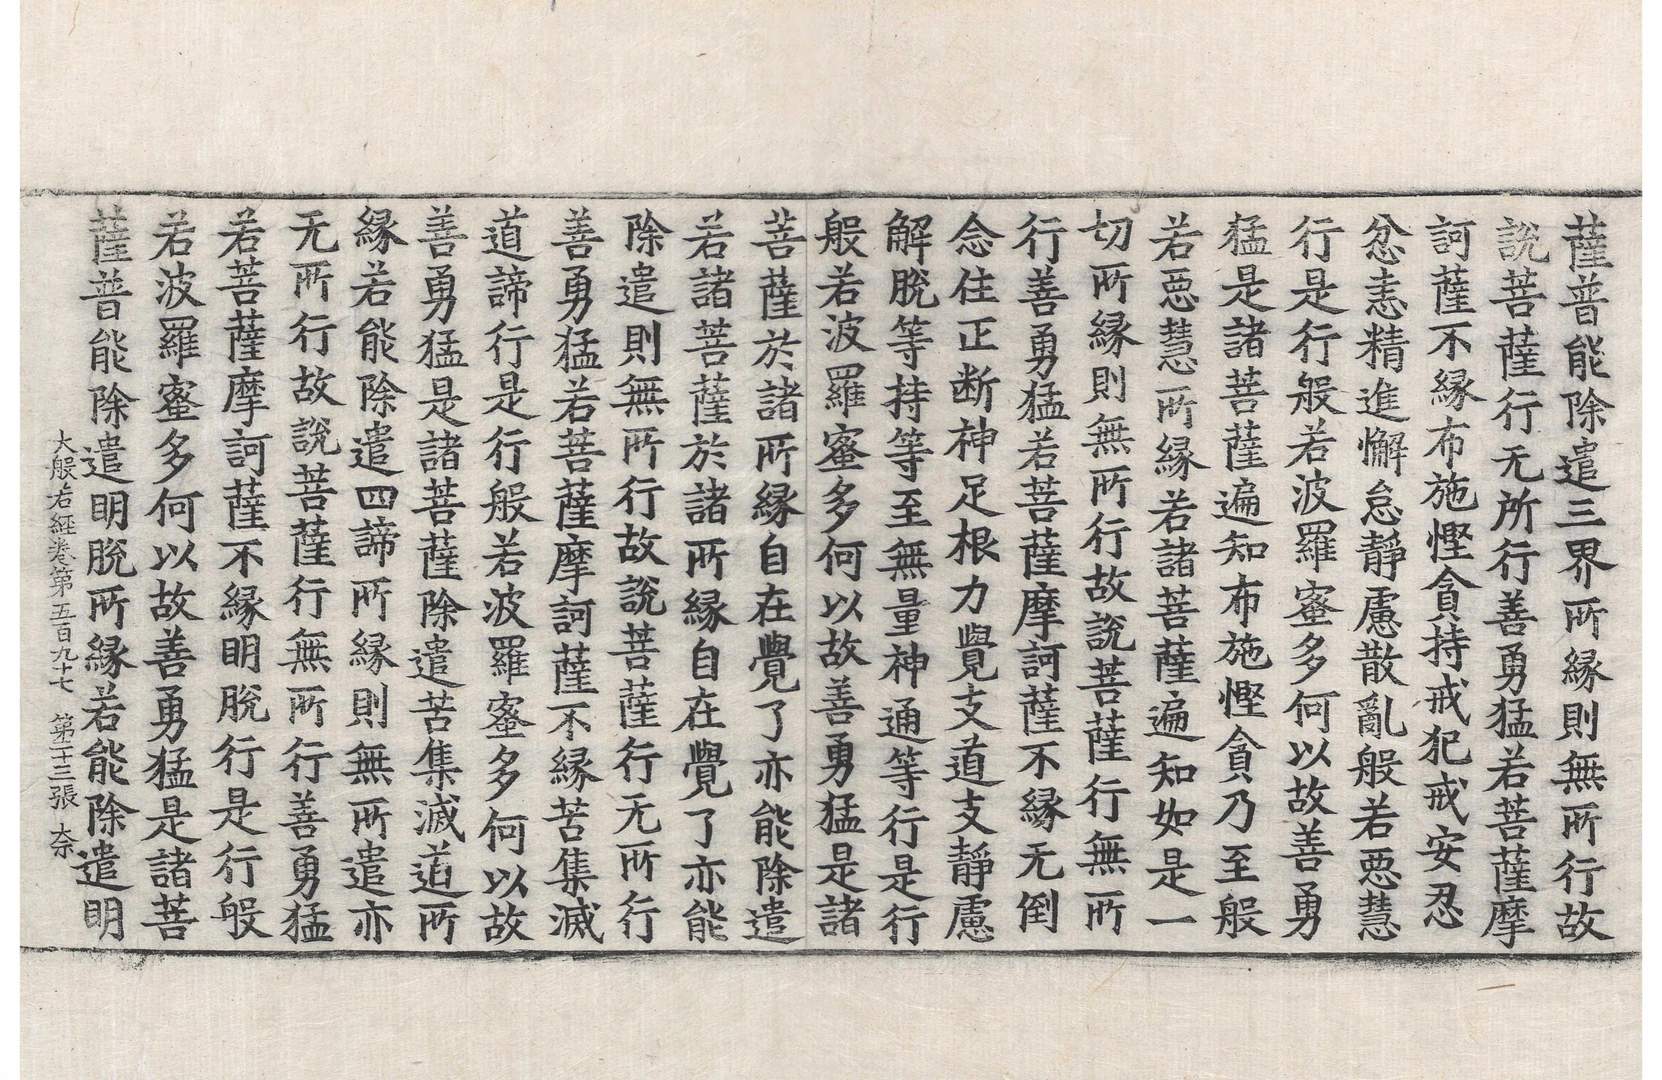 薩普能除遣三界所縁則無所行故
說菩薩行无所行善勇猛若菩薩摩
訶薩不縁布施慳貪持戒犯戒安忍
忿恚精進懈怠靜慮散亂般若惡慧
行是行般若波羅蜜多何以故善勇
猛是諸菩薩遍知布施慳貪乃至般
若惡慧所縁若諸菩薩遍知如是一
切所縁則無所行故說菩薩行無所
行善勇猛若菩薩摩訶薩不縁无倒
念住正断神足根力覺支道支靜慮
解脫等持等至無量神通等行是行
般若波羅蜜多何以故善勇猛是諸
菩薩於諸所縁自在覺了亦能除遣
若諸菩薩於諸所縁自在覺了亦能
除遣則無所行故說菩薩行无所行
善勇猛若菩薩摩訶薩不縁苦集滅
道諦行是行般若波羅蜜多何以故
善勇猛是諸菩薩除遣苦集滅道所
縁若能除遣四諦所縁則無所遣亦
无所行故說菩薩行無所行善勇猛
若菩薩摩訶薩不縁明脫行是行般
若波羅蜜多何以故善勇猛是諸菩
薩普能除遣明脫所縁若能除遣明
大般若經卷第五百九十七 第二十三張 奈